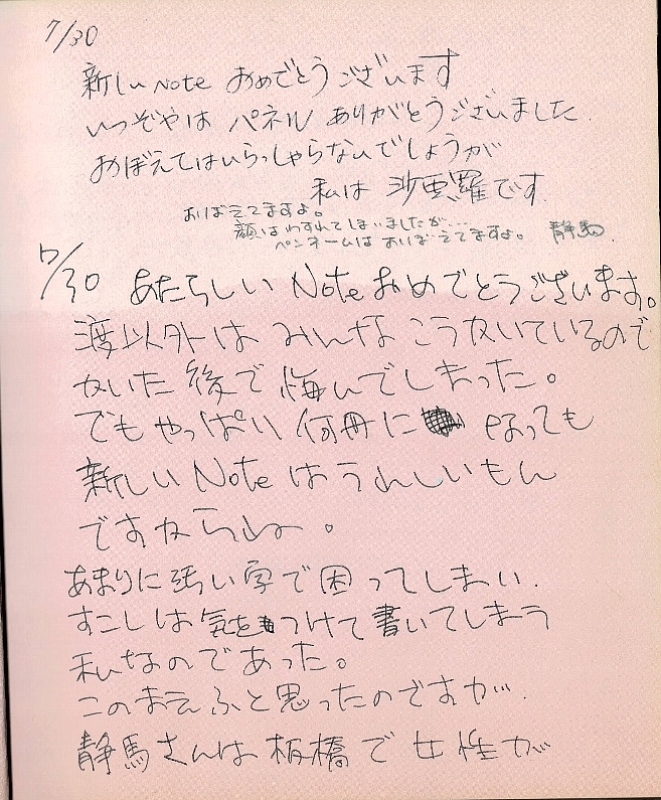 7/30
新しいNote おめでとうございます
いつぞやは パネル ありがとうございました
おぼえてはいらっしゃらないでしょうが
私は 沙亜羅です
おぼえてますよ。
顔はわすれてしまいましたが‥‥
ペンネームは おぼえてますよ。 静馬
7/30 あたらしい Note おめでとうございます。
渡以外は みんな こうかいているので
かいた後で 悔んでしまった。
でもやっぱい 何冊に なっても
新しい Note はうれしいもん
ですからね。
あまりに汚い字で困ってしまい
すこしは気をつけて書いてしまう
私なのであった。
このまえふと思ったのですが
静馬さんは 板橋で 女性が